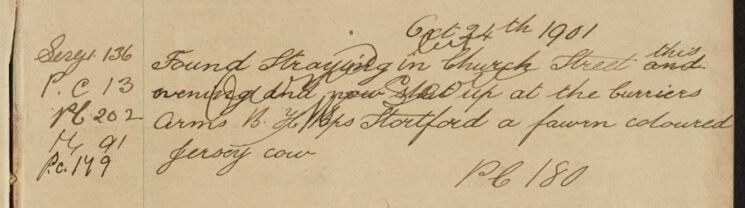 Oct 24th 1901
Sergt 136
P.C 13
PC 202
91
P.c. 179
Found Straying in Church Street this and
evening and now Shut up at the Curriers
Arms B. Stortford a fawn coloured
Jersey cow
PC 180